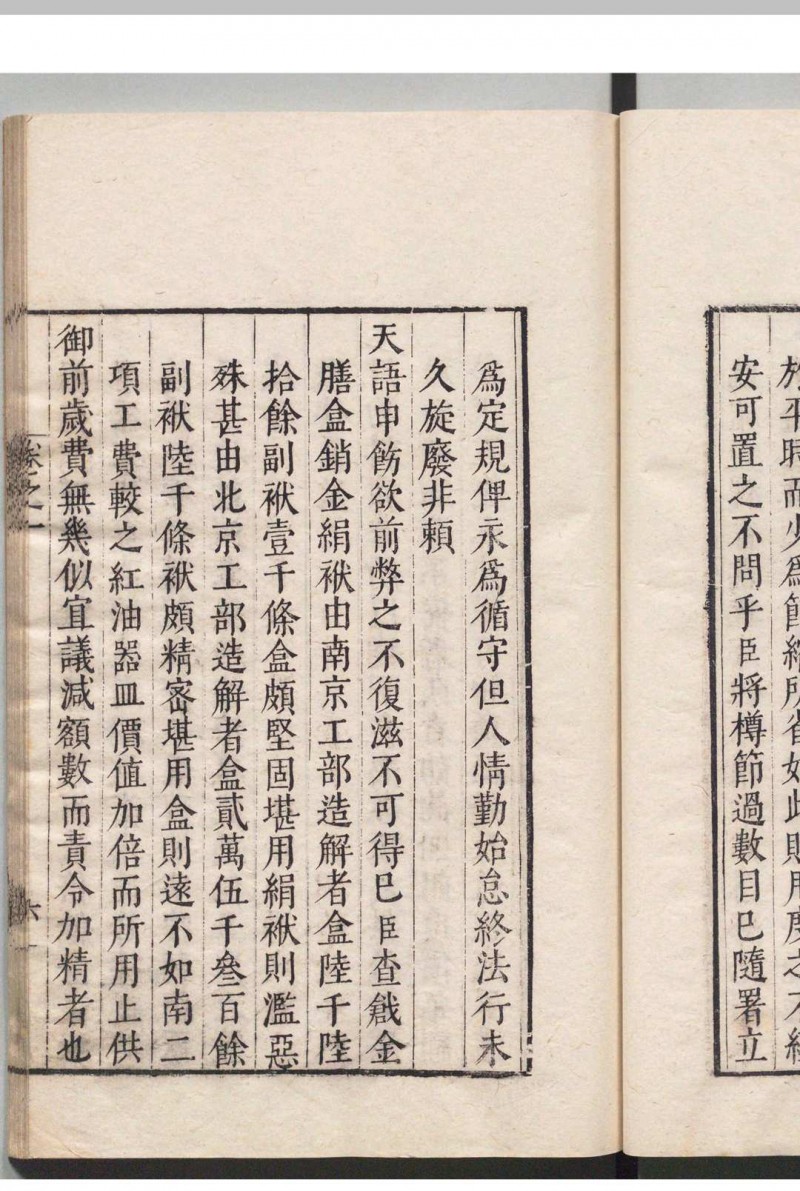 於平時而少爲節縮所省如此則用度之不經
安可置之不問乎臣將樽節過數目已隨署立
爲定規俾永爲循守但人情勤始怠終法行未
久旋廢非賴
天語申飭欲前弊之不復滋不可得巳臣查戧金
膳盒銷金絹袱由南京工部造解者盒陸千陸
拾餘副袱壹千條盒頗堅固堪用絹袱則濫惡
殊甚由北京工部造解者盒貳萬伍千叄百餘
副袱陸千條袱頗精密堪用盒則遠不如南二
項工費較之紅油器皿價值加倍而所用止供
御前歲費無幾似宜議減額數而責令加精者也
卷之一
六